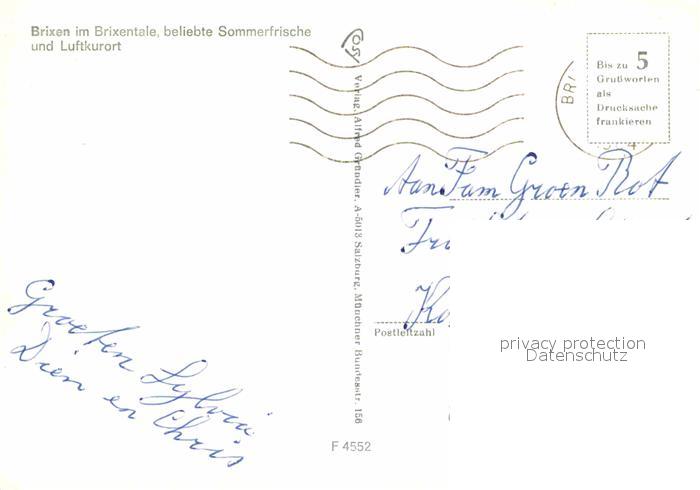 Brixen im Brixentale, beliebte Sommerfrische
und Luftkurort
Bis zu 5
Grußworten
als
Drucksache
frankieren
BRI
Verlag Alfred Gründler, A-5013 Salzburg, Münchner Bundesstr. 156
Aan Fam Groen Rot
Postleitzahl
privacy protection
Datenschutz
Groeten Sylvia
Dien en Chris
F 4552